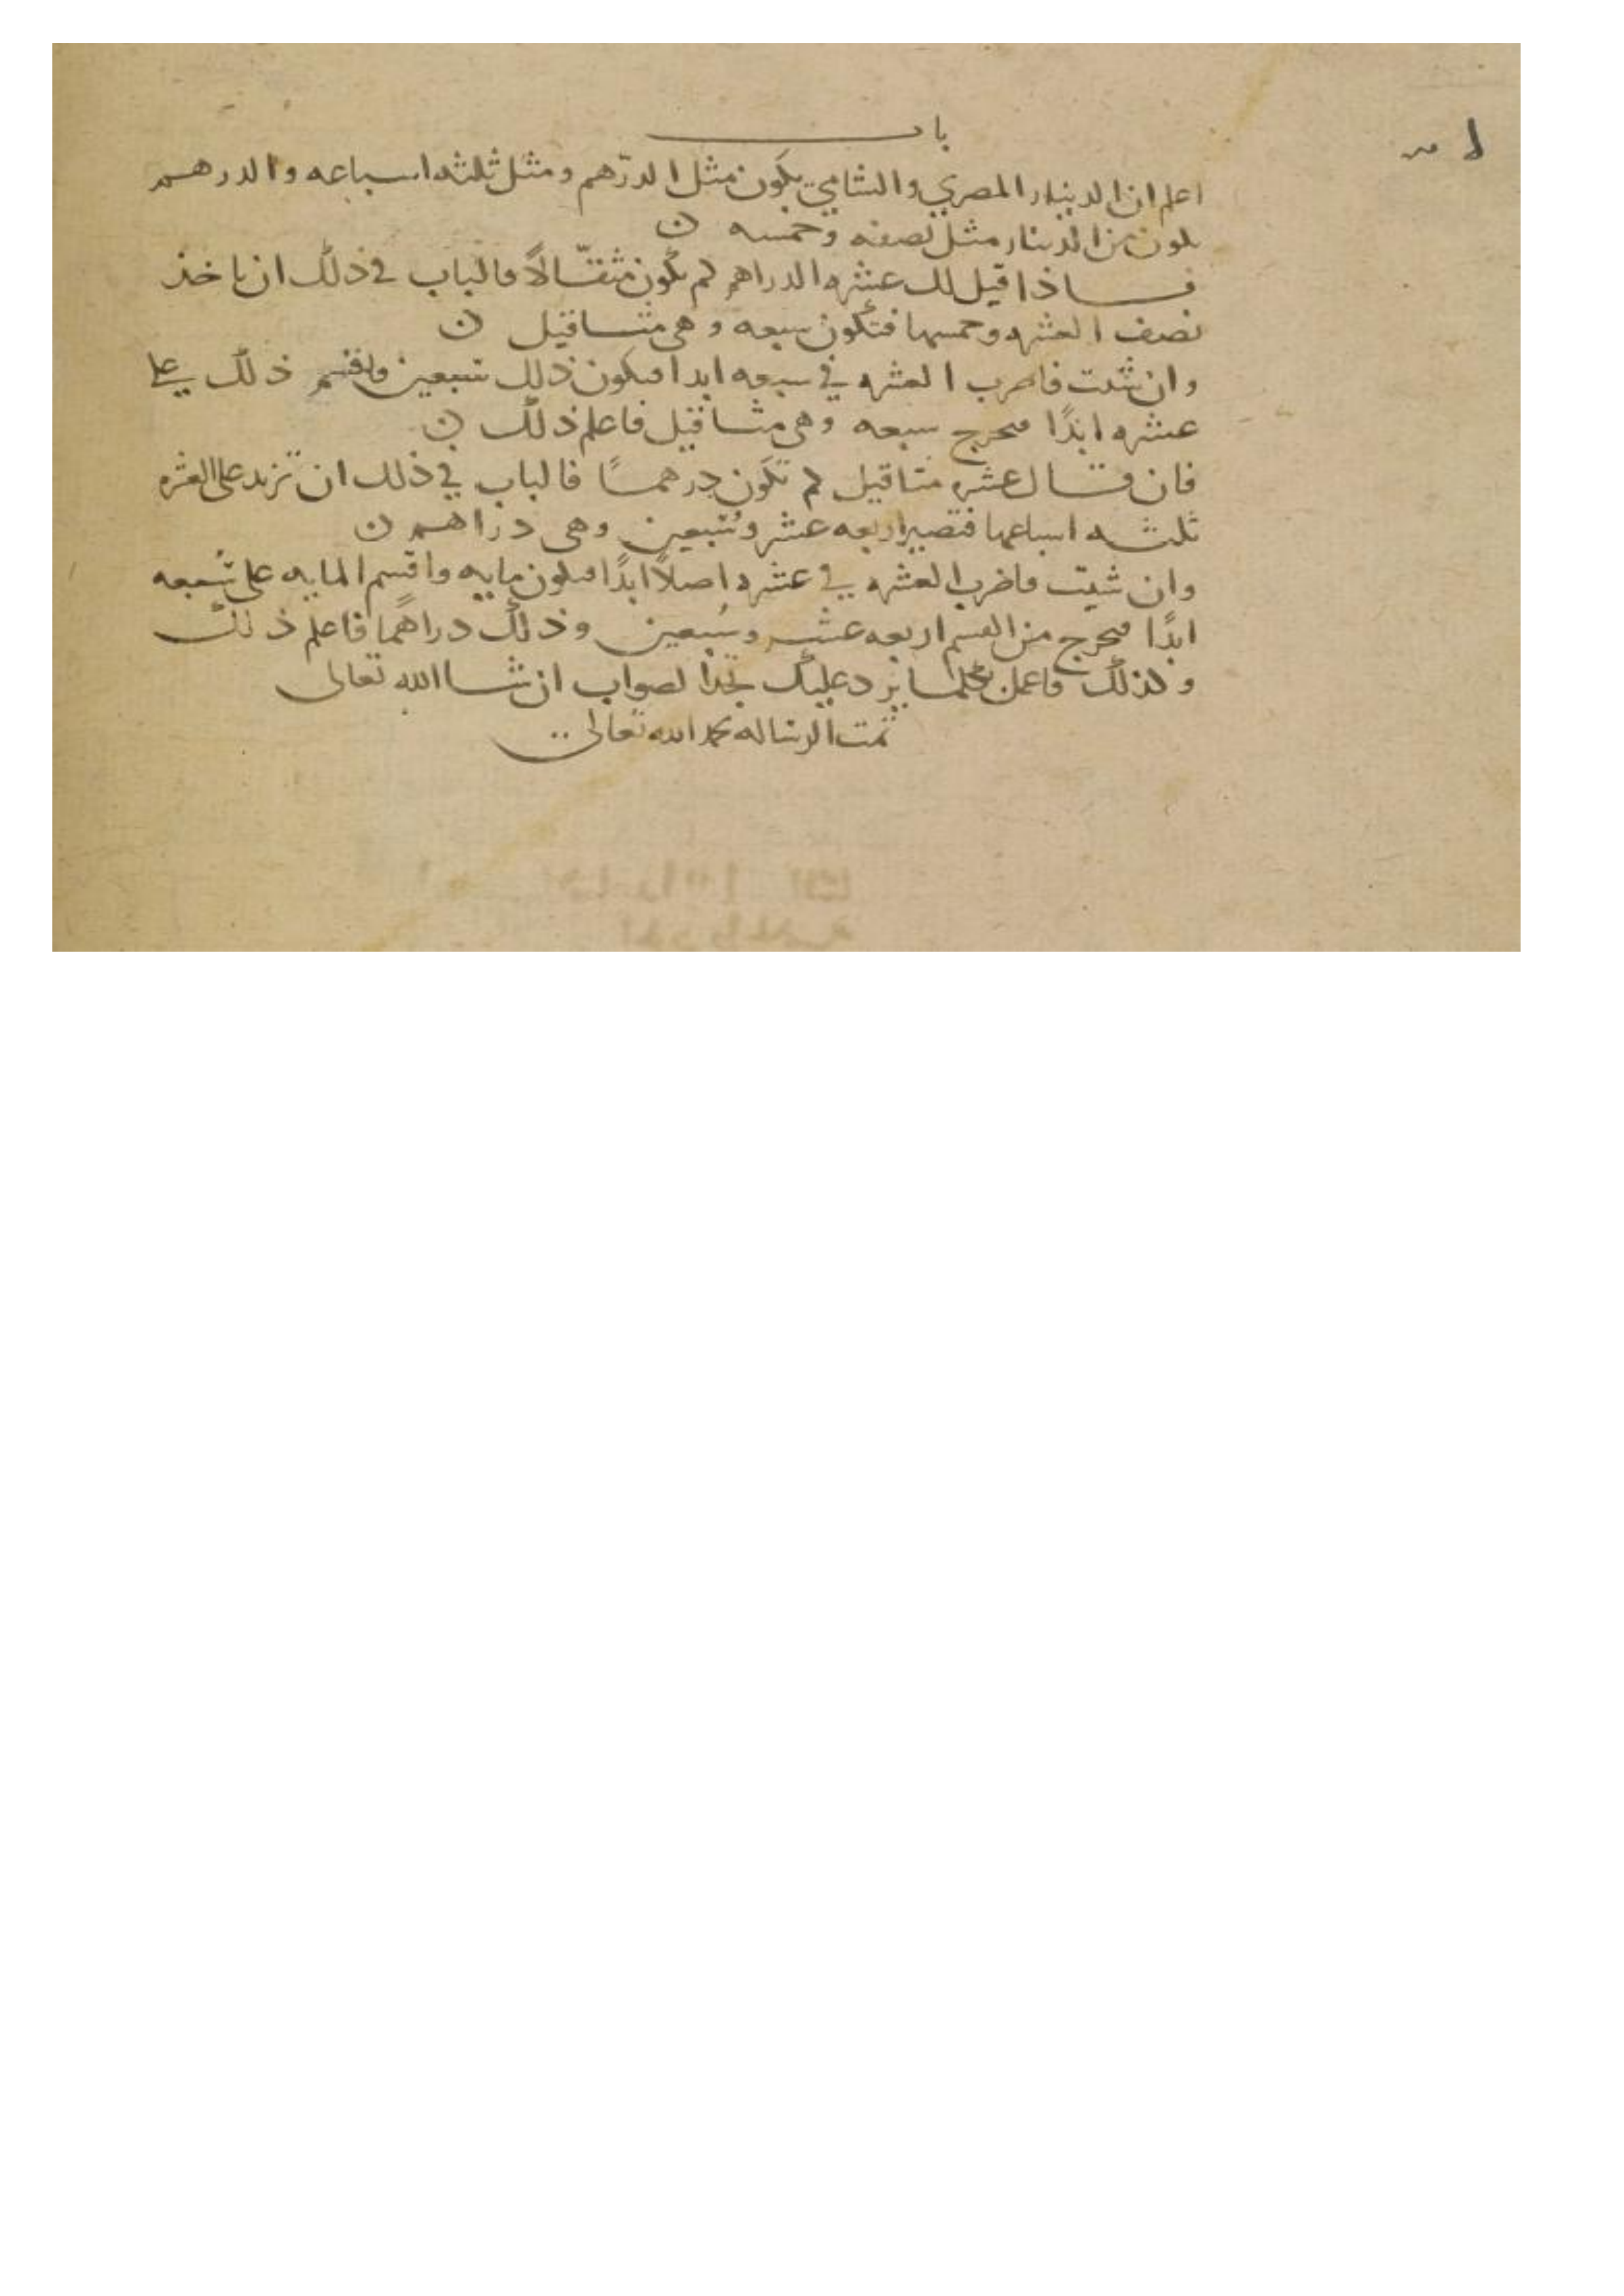 باب
اعلم ان الدينار المصري والشامي يكون مثل الدرهم ومثل ثلثه اسباعه والدرهم
يكون من الدينار مثل نصفه وخمسه ن
فاذا قيل لك عشره الدراهم كم يكون مثقالاً فالباب في ذلك ان ياخذ
نصف العشره وخمسها فتكون سبعه وهي مثاقيل ن
وان شئت فاضرب العشره في سبعه ابدا فيكون ذلك سبعين واقسم ذلك على
عشره ابدًا فيخرج سبعه وهي مثاقيل فاعلم ذلك ن
فان قال عشره مثاقيل كم تكون درهمًا فالباب في ذلك ان تزيد على العشره
ثلثه اسباعها فتصير اربعه عشر وسُبعين وهي دراهم ن
وان شيت فاضرب العشره في عشره اصلاً ابدًا فيكون مايه واقسم المايه على سبعه
ابدًا فيخرج من القسم اربعه عشر وسُبعين وذلك دراهمًا فاعلم ذلك
وكذلك فاعمل بكلما يرد عليك تجد الصواب ان شا الله تعالى
تمت الرساله بحمد الله تعالى